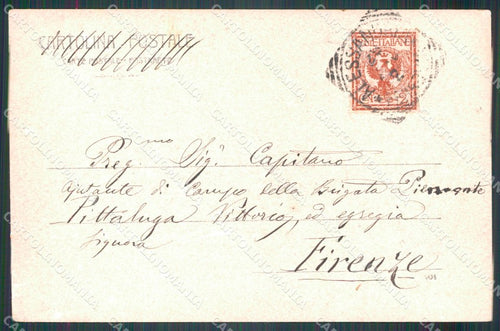 CARTOLINA POSTALE
ALESSAN
POSTE ITALIANE
Preg.mo Sig. Capitano
ajutante di Campo della Brigata Piemonte
Pittaluga Vittorio, ed egregia
Signora
Firenze
CARTOLINOMANIA